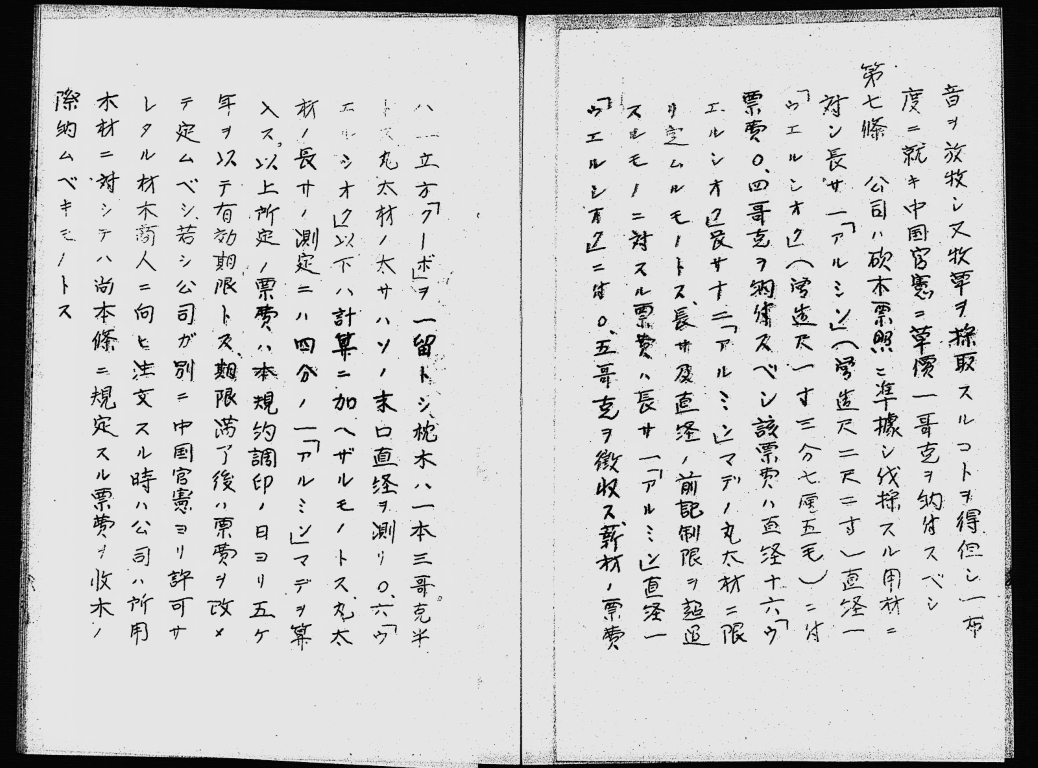 音ヲ放牧シ又牧草ヲ採取スルコトヲ得但シ一布
度ニ就キ中国官憲ニ草價一哥克ヲ納付スベシ
第七條　公司ハ砍木票照ニ準據シ伐採スル用材ニ
対シ長サ一「アルシン」(営造尺二尺二寸)直径一
「ウエルシオク」(営造尺一寸三分七厘五毛)ニ付
票費〇、四哥克ヲ納付スベシ該票費ハ直径十六「ウ
エルシオク」長サ十二「アルミン」マデノ丸太材ニ限
リ定ムルモノトス、長サ及直径ノ前記制限ヲ超過
スルモノニ対スル票費ハ長サ一「アルミン」直径一
「ウエルシオク」ニ付〇、五哥克ヲ徴収ス、薪材ノ票費
ハ一立方「クーボ」ヲ一留トシ、枕木ハ一本三哥克半
トス丸太材ノ太サハソノ末口直径ヲ測リ〇、六「ウ
エルシオク」以下ハ計算ニ加ヘザルモノトス、丸太
材ノ長サノ測定ニハ四分ノ一「アルミン」マデヲ算
入ス、以上所定ノ票費ハ本規約調印ノ日ヨリ五ケ
年ヲ以テ有効期限トス、期限満了後ハ票費ヲ改メ
テ定ムベシ、若シ公司ガ別ニ中国官憲ヨリ許可サ
レタル材木商人ニ向ヒ注文スル時ハ公司ハ所用
木材ニ対シテハ尚本條ニ規定スル票費ヲ收木ノ
際納ムベキモノトス